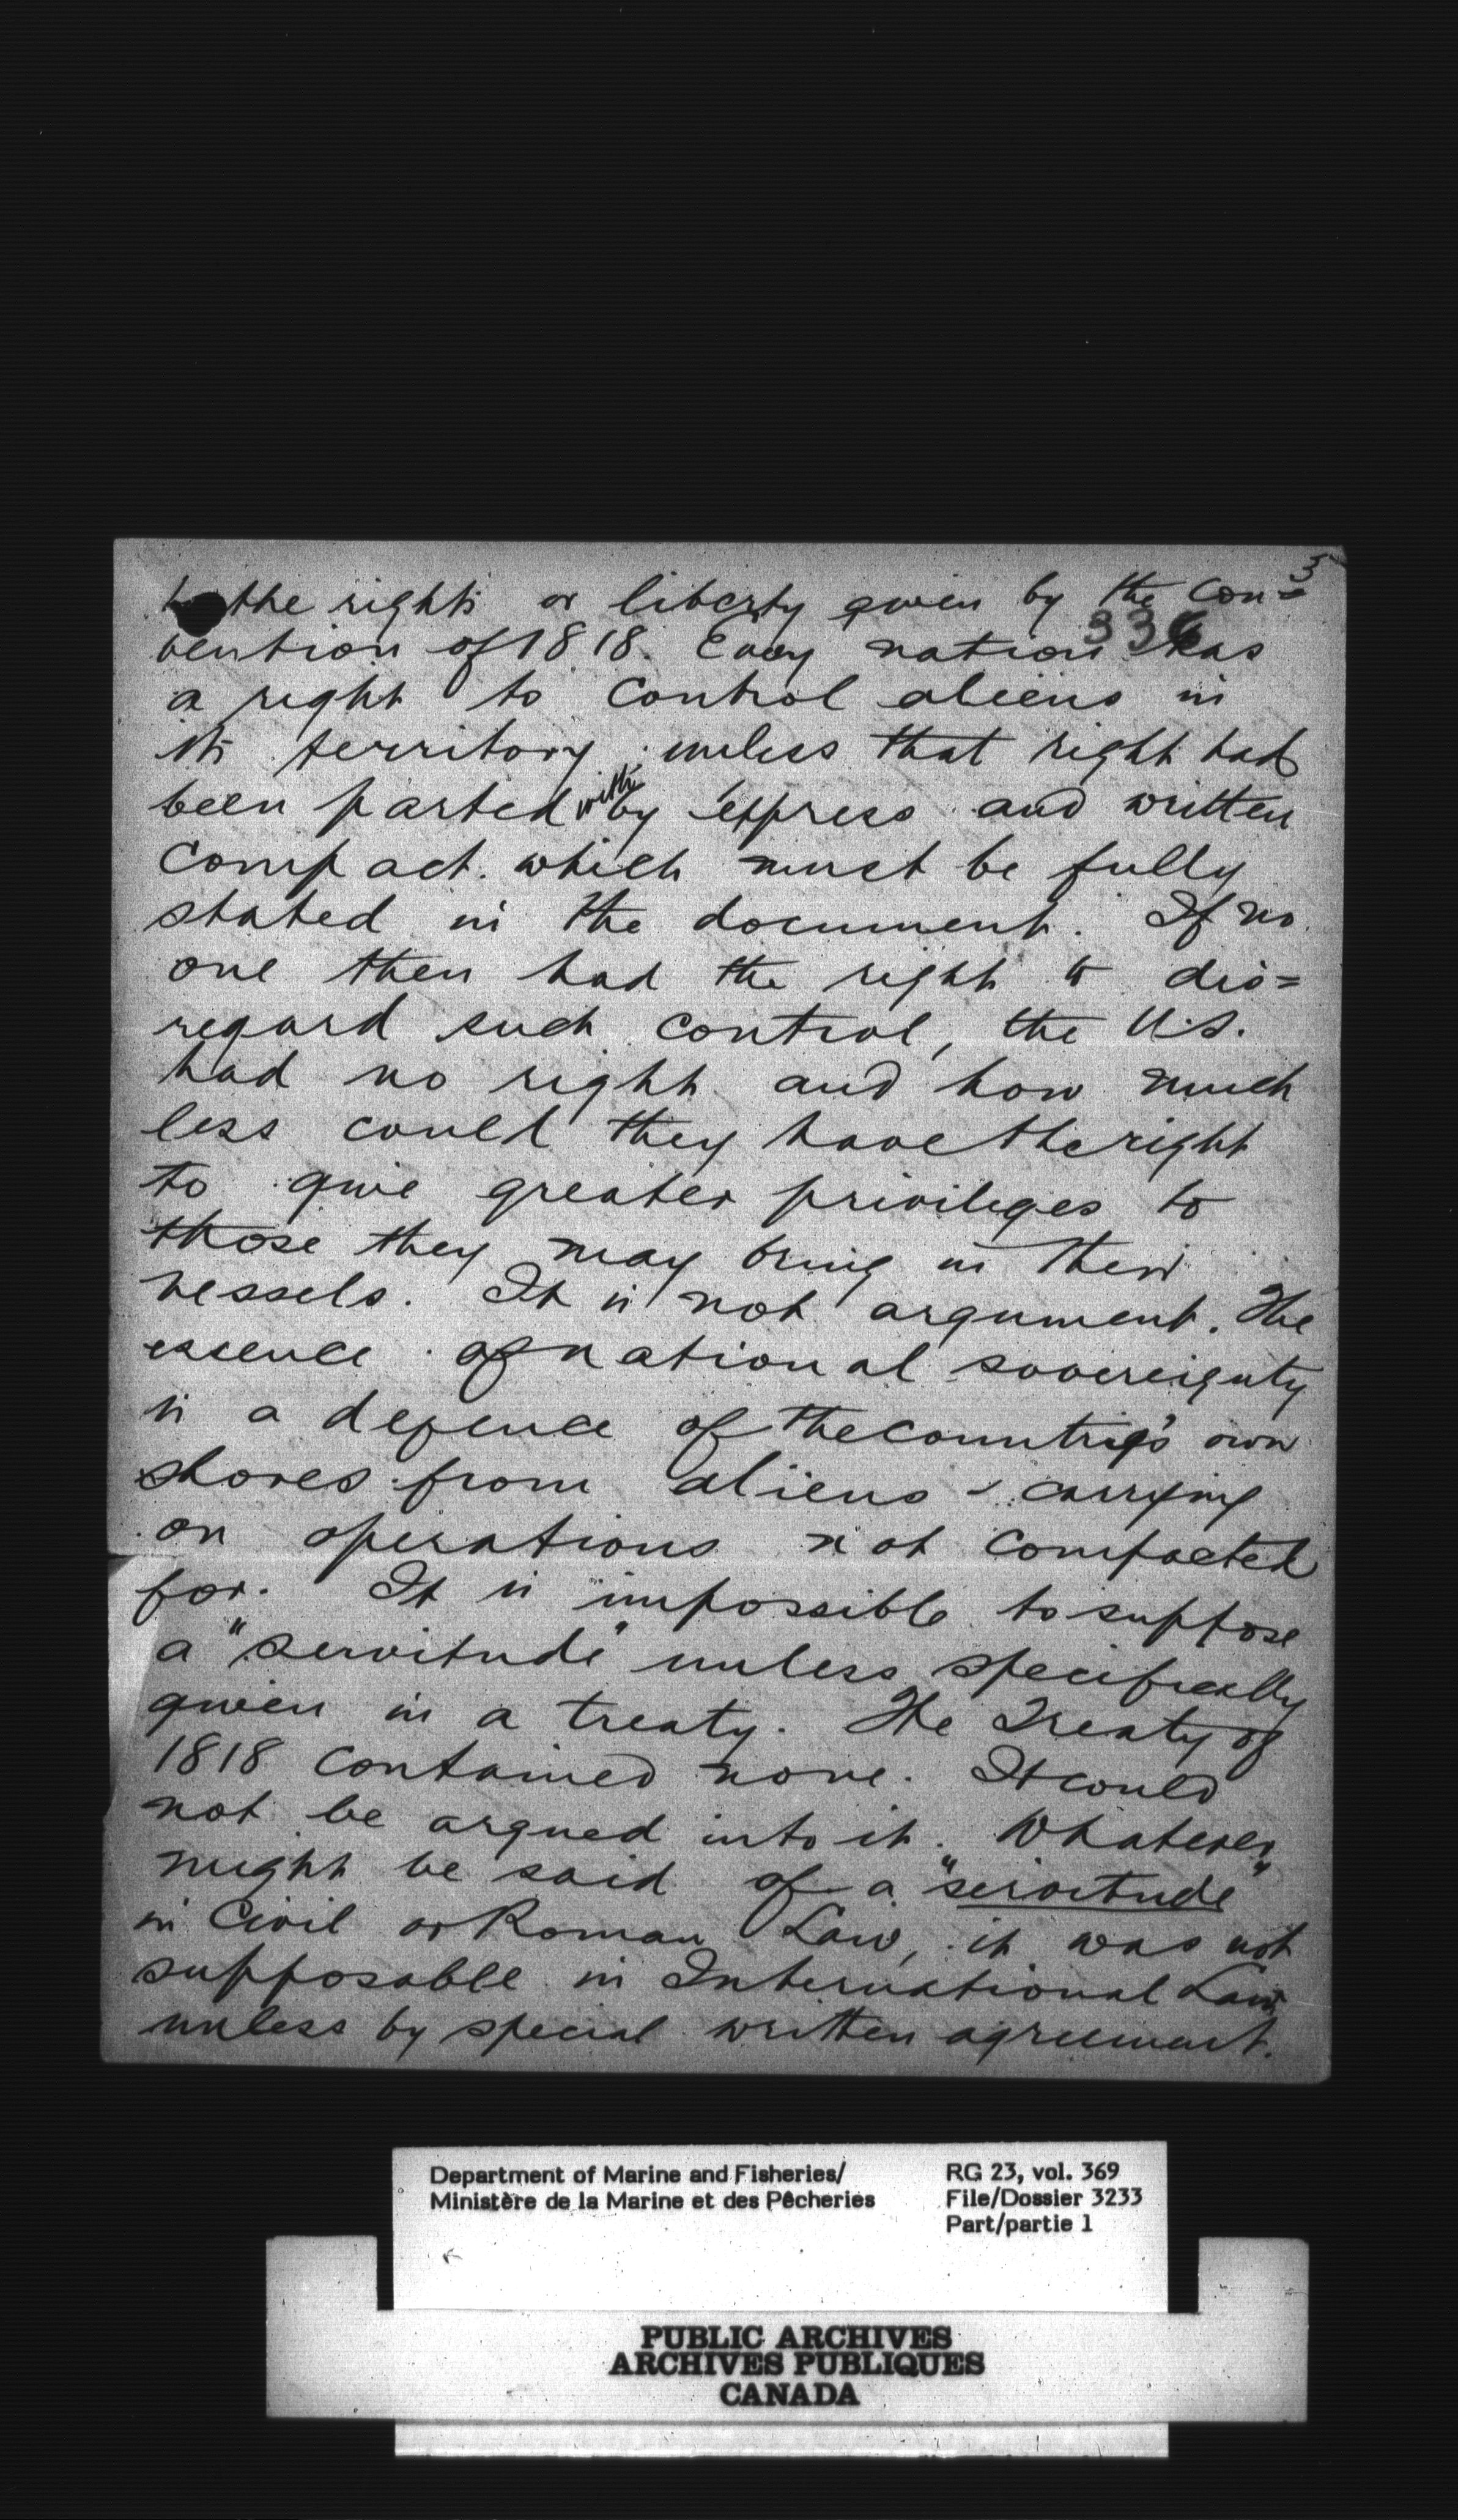 3
to the rights or liberty given by the Con=
336
vention of 1818. Every nation has
a right to control aliens in
its territory unless that right had
been parted with by express and written
compact which must be fully
stated in the document. If no
one then had the right to dis=
regard such control, the U.S.
had no right and how much
less could they have the right
to give greater privileges to
those they may bring in their
vessels. It is not argument. The
essence of national sovereignty
is a defence of the country's own
shores from aliens carrying
on operations not compacted
for. It is impossible to suppose
a "servitude" unless specifically
given in a treaty. The Treaty of
1818 contained none. It could
not be argued into it. Whatever
might be said of a "servitude"
in Civil or Roman Law, it was not
supposable in International Law
unless by special written agreement.
Department of Marine and Fisheries/
Ministère de la Marine et des Pêcheries
RG 23, vol. 369
File/Dossier 3233
Part/partie 1
PUBLIC ARCHIVES
ARCHIVES PUBLIQUES
CANADA